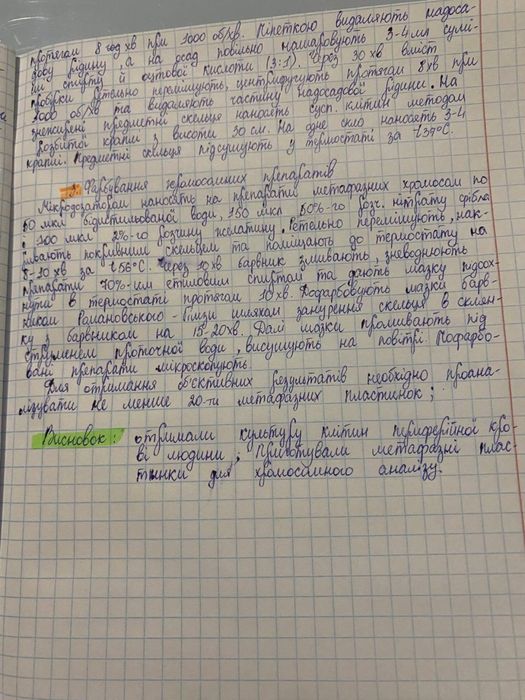 протягом 8 год хв при 1000 об/хв. Піпеткою видаляють надоса-
дову рідину, а на осад повільно нашаровують 3-4 мл сумі-
ші спирту й оцтової кислоти (3:1). Через 30 хв вміст
пробірки ретельно перемішують, центрифугують протягом 8 хв при
1000 об/хв та видаляють частину надосадової рідини. На
знежирені предметні скельця наносять сусп. клітин методом
розбитої краплі з висоти 30 см. На одне скло наносять 3-4
краплі. Предметні скельця підсушують у термостаті за t 37°C.
Фарбування хромосомних препаратів
Мікродозатором наносять на препарати метафазних хромосом по
50 мкл бідистильованої води, 150 мкл 50%-го розч. нітрату срібла
і 100 мкл 2%-го розчину желатину. Ретельно перемішують, нак-
ривають покривним скельцем та поміщають до термостату на
5-10 хв за t 56°C. Через 10 хв барвник змивають, зневоднюють
препарати 70%-им етиловим спиртом та дають мазку підсох-
нути в термостаті протягом 10 хв. Пофарбовують мазки барв-
ником Романовського - Гімзи шляхом занурення скельця в склян-
ку з барвником на 15-20хв. Далі мазки промивають під
струменем проточної води, висушують на повітрі. Пофарбо-
вані препарати мікроскопують.
Для отримання об'єктивних результатів необхідно проана-
лізувати не менше 20-ти метафазних пластинок;
Висновок: отримали культуру клітин периферійної кро-
ві людини; Приготували метафазні плас-
тинки для хромосомного аналізу.